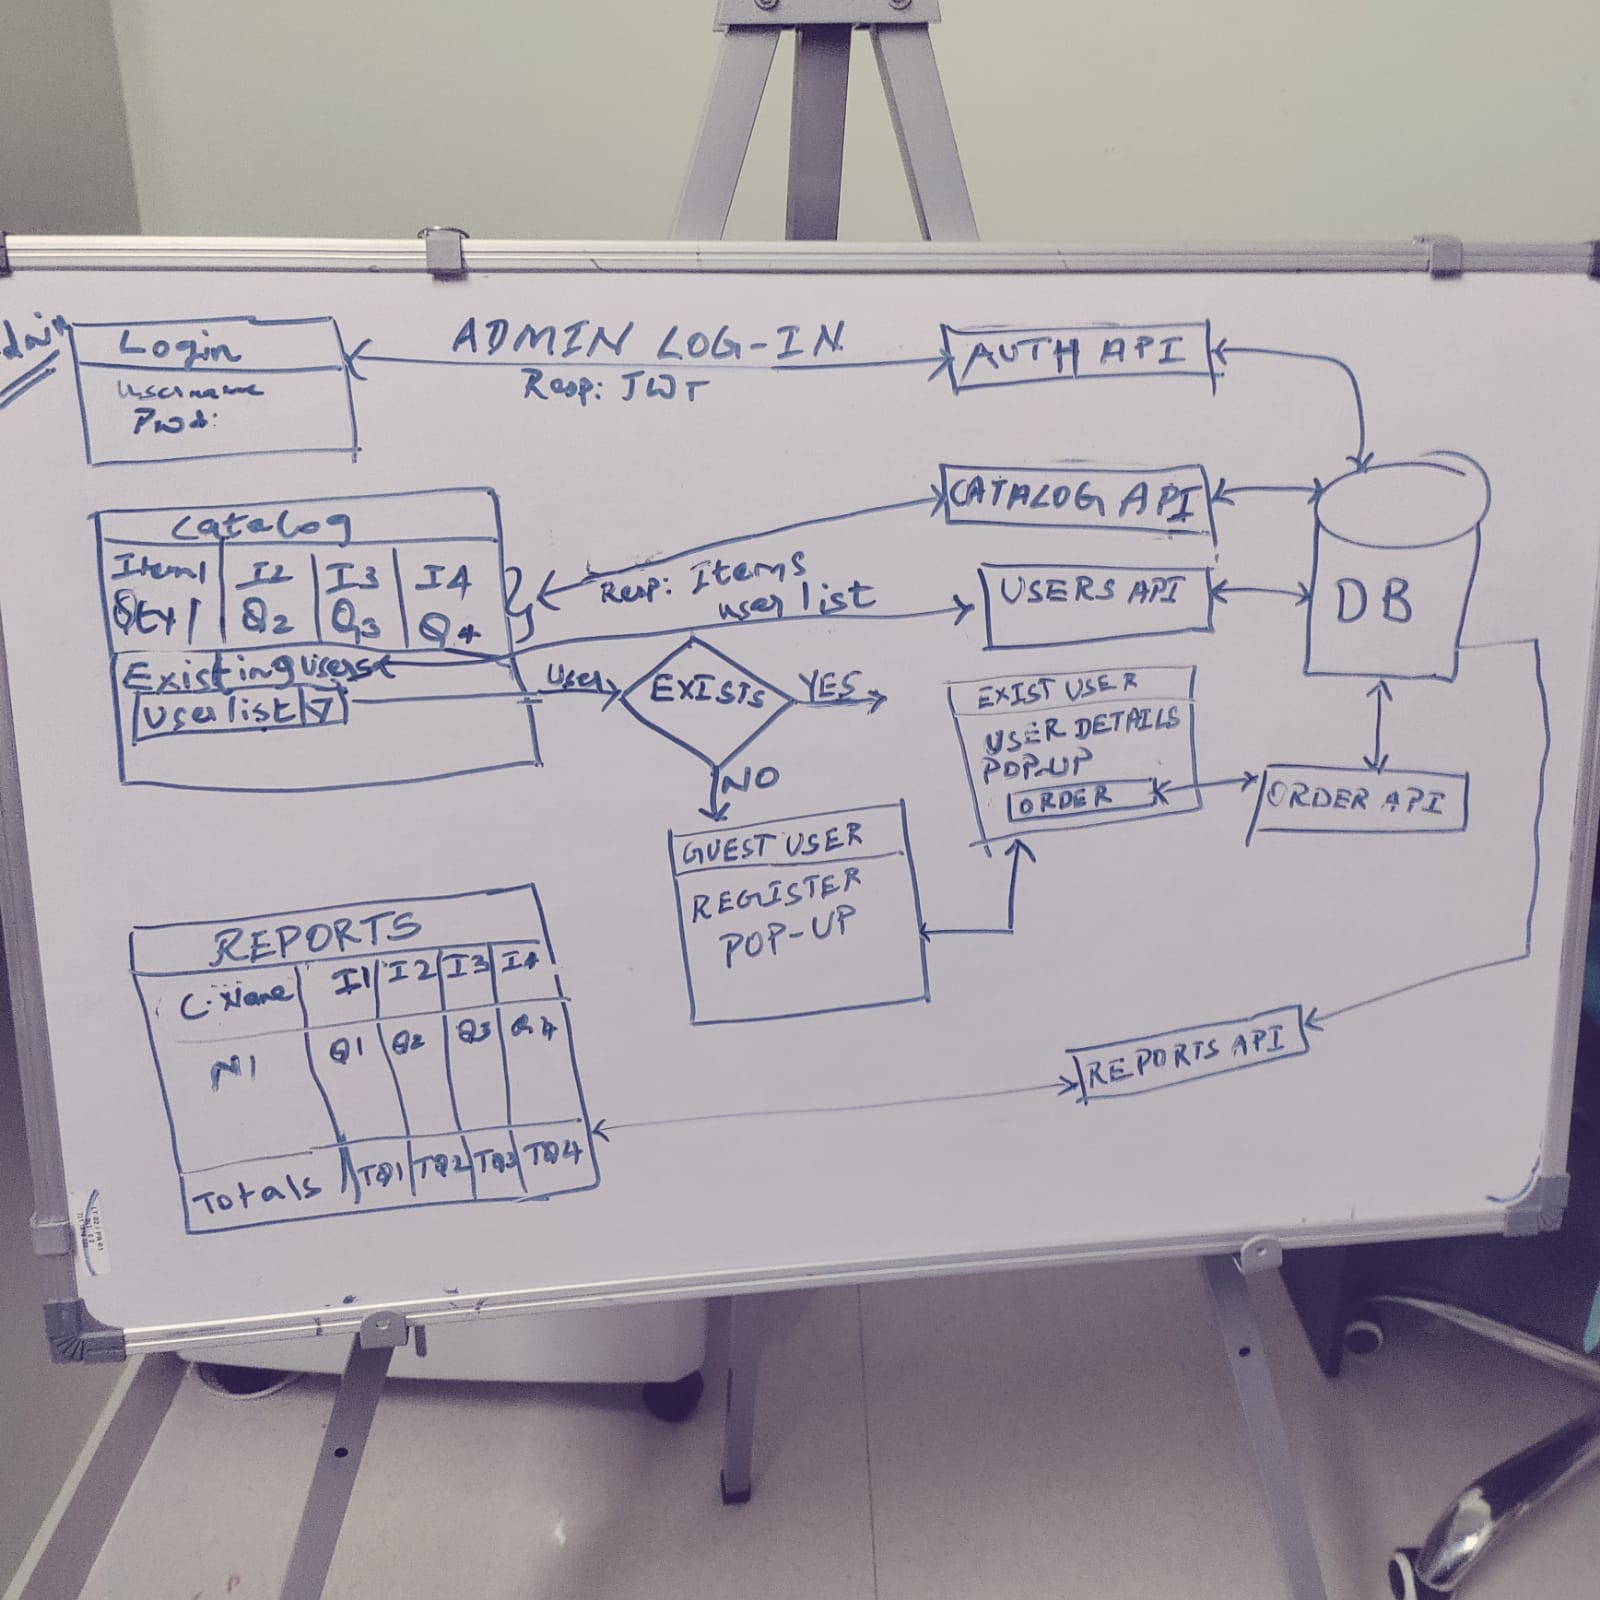 Login
Username
Pwd:
ADMIN LOG-IN
Resp: JWT
AUTH API
Catalog
Item1 I2 I3 I4
Qty1 Q2 Q3 Q4
Existing users
User list
CATALOG API
Resp: Items
user list
USERS API
DB
User
EXISTS
YES
NO
EXIST USER
USER DETAILS
POP-UP
ORDER
ORDER API
GUEST USER
REGISTER
POP-UP
REPORTS
C.Name I1 I2 I3 I4
N1 Q1 Q2 Q3 Q4
Totals TQ1 TQ2 TQ3 TQ4
REPORTS API